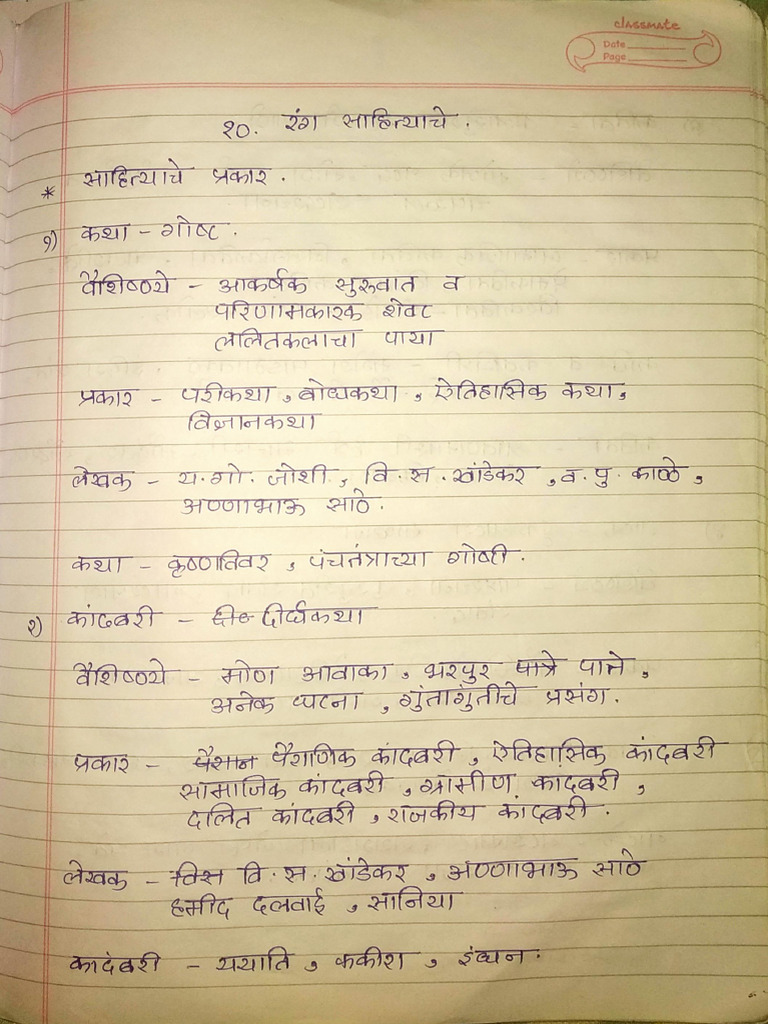 classmate
Date
Page
१०. रंग साहित्याचे.
* साहित्याचे प्रकार.
१) कथा - गोष्ट.
वैशिष्ट्ये - आकर्षक सुरुवात व
परिणामकारक शेवट
ललितकलाचा पाया
प्रकार - परीकथा, बोधकथा, ऐतिहासिक कथा,
विज्ञानकथा
लेखक - य. गो. जोशी, वि. स. खांडेकर, व. पु. काळे,
अण्णाभाऊ साठे.
कथा - कृष्णविवर, पंचतंत्राच्या गोष्टी.
२) कांदबरी - दीर्घकथा
वैशिष्ट्ये - मोठा आवाका, भरपुर पात्रे पात्रे,
अनेक घटना, गुंतागुंतीचे प्रसंग.
प्रकार - पौराणिक कांदबरी, ऐतिहासिक कांदबरी
सामाजिक कांदबरी, ग्रामीण कादंबरी,
दलित कांदबरी, राजकीय कांदबरी.
लेखक - वि. स. खांडेकर, अण्णाभाऊ साठे
हमीद दलवाई, सानिया
कादंबरी - ययाति, फकीरा, इंधन.